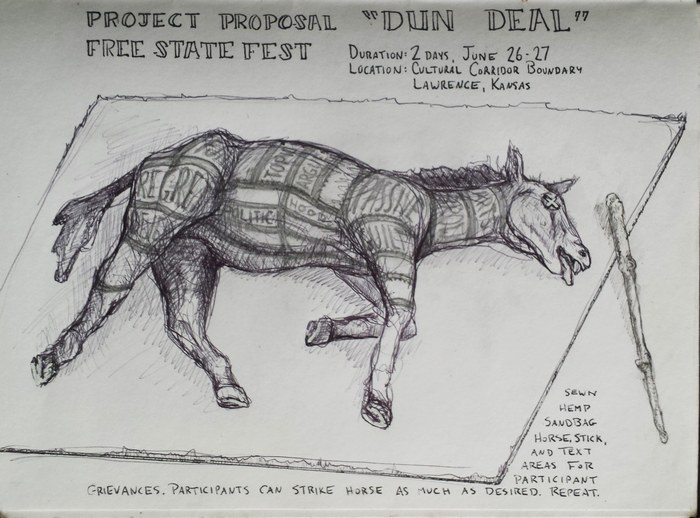 PROJECT PROPOSAL "DUN DEAL"
FREE STATE FEST
DURATION: 2 DAYS, JUNE 26-27
LOCATION: CULTURAL CORRIDOR BOUNDARY
LAWRENCE, KANSAS
REGRE
TOPI
POLITIC
PASSIVE
SEWN
HEMP
SANDBAG
HORSE, STICK,
AND TEXT
AREAS FOR
PARTICIPANT
GRIEVANCES. PARTICIPANTS CAN STRIKE HORSE AS MUCH AS DESIRED. REPEAT.